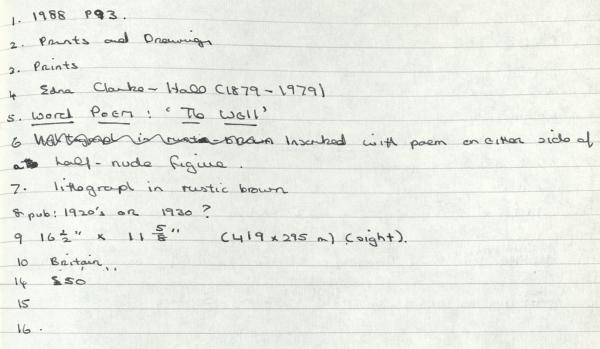 1. 1988 P93.
2. Prints and Drawings
3. Prints
4 Edna Clarke-Hall (1879-1979)
5. Word Poem: 'The Well'
6 Inscribed with poem on either side of
half-nude figure.
7. lithograph in rustic brown
8 pub: 1920's or 1930?
9 16 1/2" x 11 5/8" (419 x 295 m) (sight).
10 Britain
14 £50
15
16.